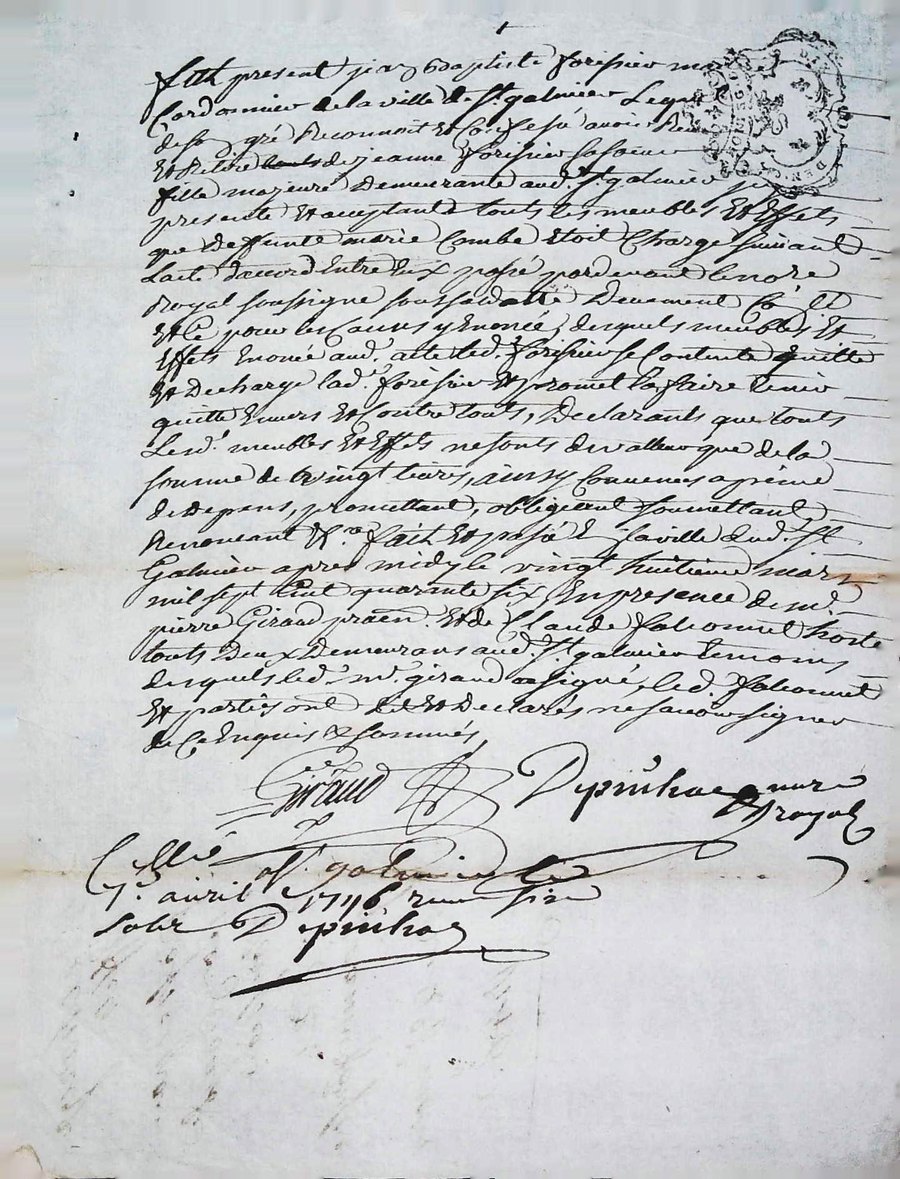 fut present jean Baptiste forissier
Cordonnier de la ville de St galmier Lequel
de son gré Reconnoit Et Confesse avoir
Et Retiré touts de jeanne forissier sa soeur
fille majeure Demeurante aud. St galmier
presente Et acceptante touts les meubles Et Effets
que deffunte marie Combe Etoit Chargé suivant
L'acte d'accord Entre Eux passé pardevant le no.re
Royal soussigné sous sa datte Deuement
Et Ce pour les Causes y Enoncée, desquels meubles Et
Effets Enoncé aud. acte led. forissier se Contente quitte
Et Decharge lad. forissier Et promet la faire tenir
quitte Envers Et Contre touts, Declarants que touts
Lesd. meubles Et Effets ne sonts de valleur que de la
somme de vingt livres, ainsy Convenes a peine
de depens, promettant, obligeant soumettant,
Renonceant &.ra fait Et passé E laville dud. St
Galmier apres midy le vingt huitieme mars
mil sept Cent quarante six En presence de m.e
pierre Giraud praēn. Et de Claude falconnet hoste
touts Deux Demeurans aud. St galmier temoins
desquels led. m.e giraud a signé, led. falconnet
Et partiès ont dit Et Declarés ne savoir signer
de Ce Enquis & sommés,
Giraud Depinhac no.re
royal
Cellé a St. galmier le
7.e avril 1746
Depinhac